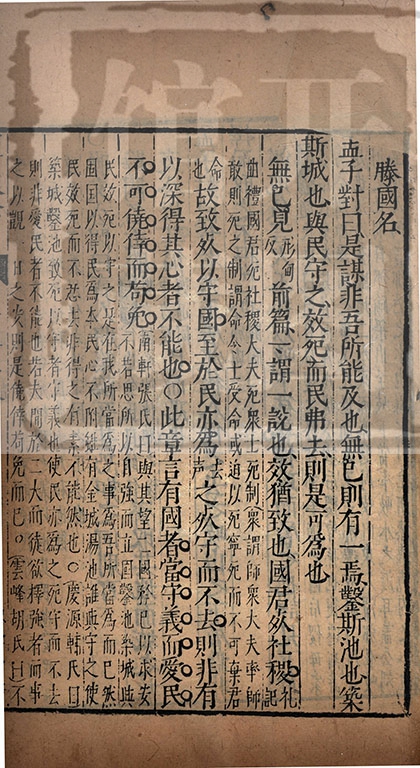 滕國名
孟子對曰是謀非吾所能及也無已則有一焉鑿斯池也築
斯城也與民守之效死而民弗去則是可爲也
無已見形甸反前篇一謂一說也效猶致也國君死社稷禮記
血禮國君死社稷大夫死衆士死制衆謂師衆大夫率師
敢則死之制謂命令士受命或迫以死寧死而不可棄君
命也故致死以守國至於民亦爲去聲之死守而不去則非有
以深得其心者不能也○此章言有國者當守義而愛民
不可僥倖而苟免○南軒張氏曰與其望二國矜己以求安
不若思所以自強而立國鑿池築城與
民效死以守之是在我所當爲之事爲吾所當爲而已然
固國以得民爲本民心不附縱有金城湯池誰與守之使
民效死而不忍去非得之有素不能然也○慶源輔氏曰
築城鑿池致死以守者守義也使民亦爲之死守而不去
則非愛民者不能也若夫間於二大而徒欲擇強者而事
之以覬一日之安則是僥倖苟免而已○雲峰胡氏曰不